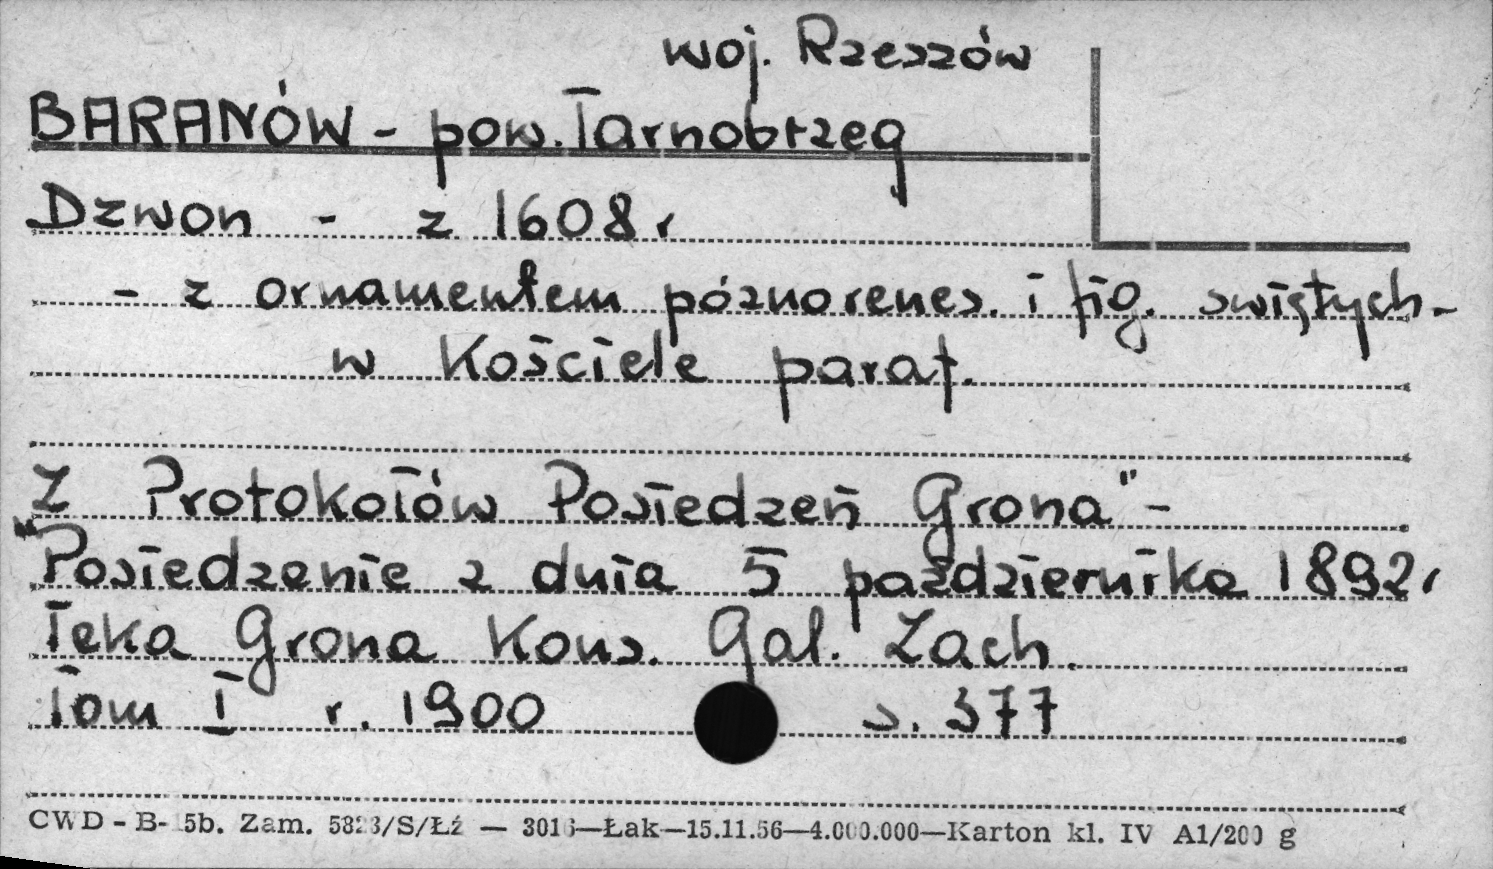 woj. Rzeszów
BARANÓW - pow. Tarnobrzeg
Dzwon - z 1608 r
- z ornamentem późnorenes. i fig. swiętych -
w Kościele paraf.
Z Protokołów Posiedzeń Grona" -
"Posiedzenie z dnia 5 października 1892 r
Teka Grona Kons. Gal. Zach.
Tom I r. 1900 s. 377
CWD - B- 5b. Zam. 5823/S/Łź — 3016—Łak—15.11.56—4.000.000—Karton kl. IV A1/200 g